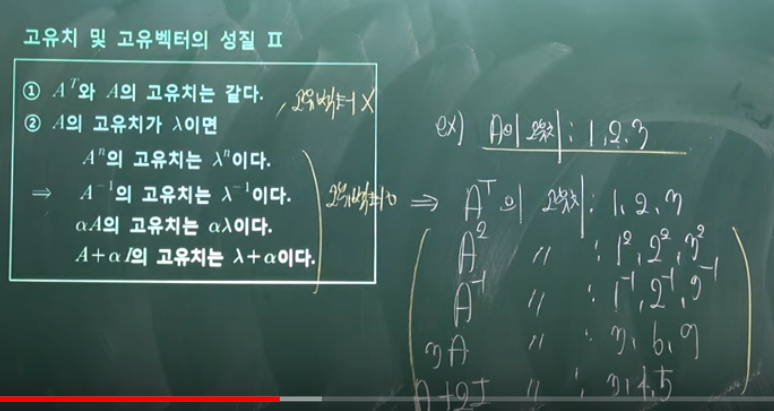 고유치 및 고유벡터의 성질 Ⅱ
① Aᵀ와 A의 고유치는 같다. , 고유벡터 X
② A의 고유치가 λ이면
Aⁿ의 고유치는 λⁿ이다.
⇒ A⁻¹의 고유치는 λ⁻¹이다. 고유벡터 o
αA의 고유치는 αλ이다.
A+αI의 고유치는 λ+α이다.
ex) A의 고유치 : 1, 2, 3
⇒ Aᵀ의 고유치 : 1, 2, 3
A² 〃 : 1², 2², 3²
A⁻¹ 〃 : 1⁻¹, 2⁻¹, 3⁻¹
3A 〃 : 3, 6, 9
A+2I 〃 : 3, 4, 5